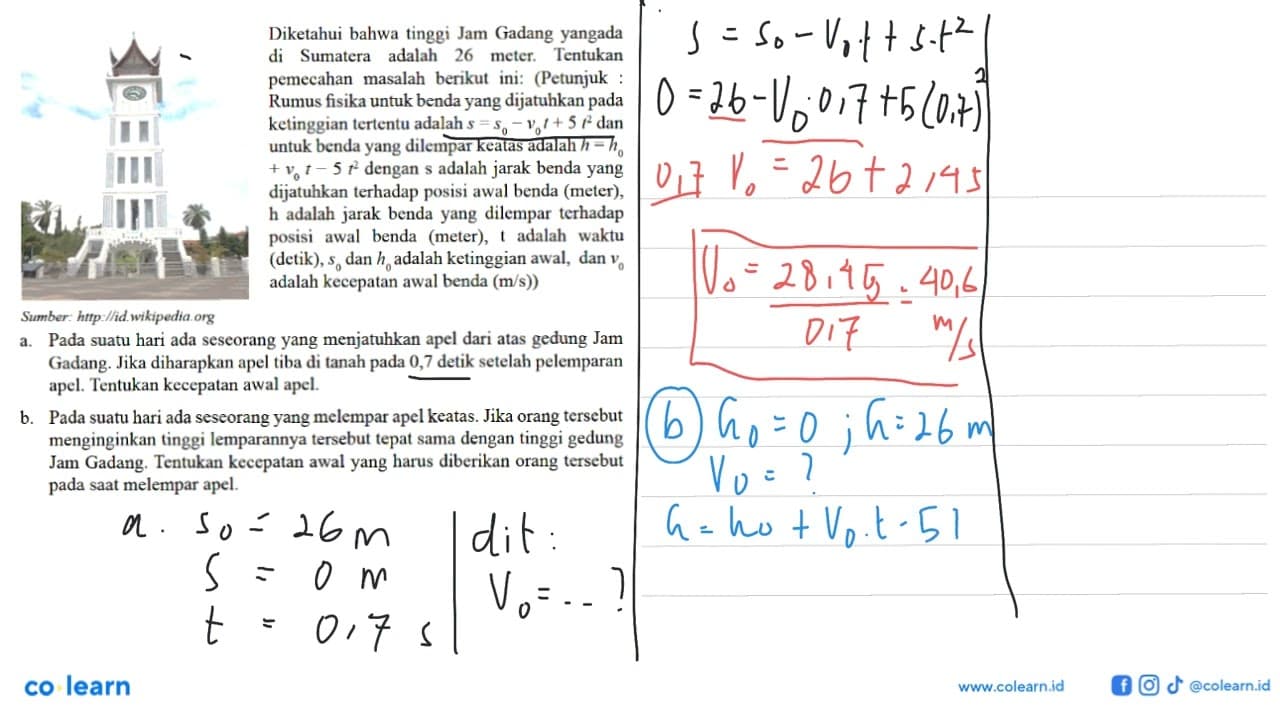 Diketahui bahwa tinggi Jam Gadang yangada
di Sumatera adalah 26 meter. Tentukan
pemecahan masalah berikut ini: (Petunjuk :
Rumus fisika untuk benda yang dijatuhkan pada
ketinggian tertentu adalah s = s₀ − v₀t + 5 t² dan
untuk benda yang dilempar keatas adalah h = h₀
+ v₀ t − 5 t² dengan s adalah jarak benda yang
dijatuhkan terhadap posisi awal benda (meter),
h adalah jarak benda yang dilempar terhadap
posisi awal benda (meter), t adalah waktu
(detik), s₀ dan h₀ adalah ketinggian awal, dan v₀
adalah kecepatan awal benda (m/s))
Sumber: http://id.wikipedia.org
a. Pada suatu hari ada seseorang yang menjatuhkan apel dari atas gedung Jam
Gadang. Jika diharapkan apel tiba di tanah pada 0,7 detik setelah pelemparan
apel. Tentukan kecepatan awal apel.
b. Pada suatu hari ada seseorang yang melempar apel keatas. Jika orang tersebut
menginginkan tinggi lemparannya tersebut tepat sama dengan tinggi gedung
Jam Gadang. Tentukan kecepatan awal yang harus diberikan orang tersebut
pada saat melempar apel.
a. s₀ = 26 m
s = 0 m
t = 0,7 s
dit:
V₀ = ... ?
s = s₀ − V₀.t + 5.t²
0 = 26 − V₀.0,7 + 5(0,7)²
0,7 V₀ = 26 + 2,45
V₀ = 28,45 = 40,6
0,7 m/s
b) h₀ = 0 ; h = 26 m
V₀ = ?
h = h₀ + V₀.t - 5 l
co learn
www.colearn.id
@colearn.id